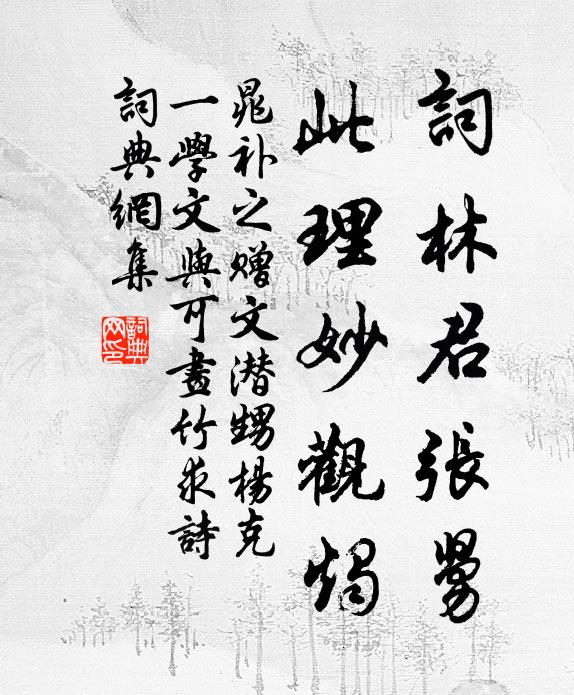 詞林君張舅
此理妙觀燭
晁补之赠文潜甥楊克
一學文與可畫竹求詩
詞典網集
詞典
网印